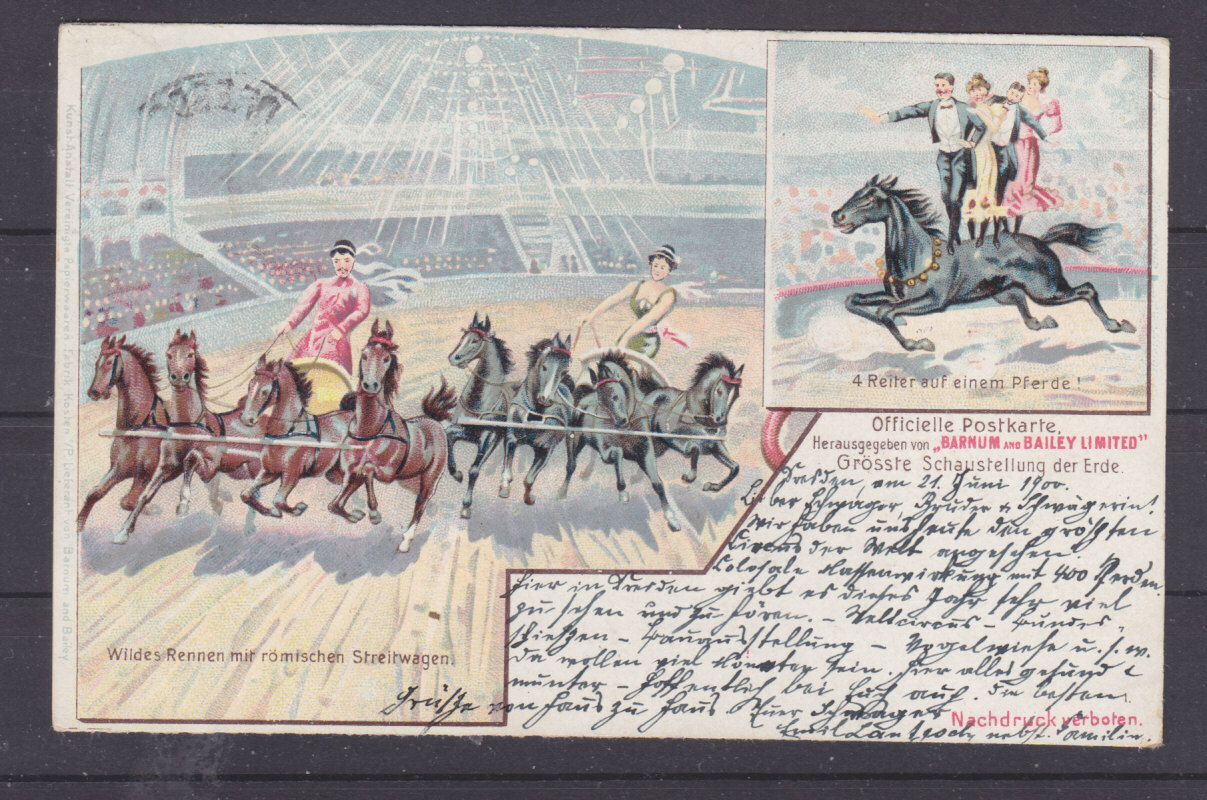 4 Reiter auf einem Pferde!
Officielle Postkarte,
Herausgegeben von „BARNUM AND BAILEY LIMITED"
Grösste Schaustellung der Erde.
Dresden, am 21. Juni 1900.
Lieber Schwager, Bruder & Schwägerin!
Wir haben uns heute den größten
Circus der Welt angesehen.
Colosale Massenwirkung mit 400 Pferden.
Hier in Dresden giebt es dieses Jahr sehr viel
zu sehen und zu hören. - Weltcircus - Bundes-
schießen - Bauausstellung - Vogelwiese u. s. w.
da wollen viel sein. Hier alles gesund &
munter - hoffentlich bei Euch auch. Die besten
Grüße von Haus zu Haus Euer Schwager
Emil nebst Familie.
Wildes Rennen mit römischen Streitwagen.
Nachdruck verboten.
Kunst-Anstalt Vereinigte Papierwaaren Fabrik Kosten i/P. Lieferant von Barnum and Bailey